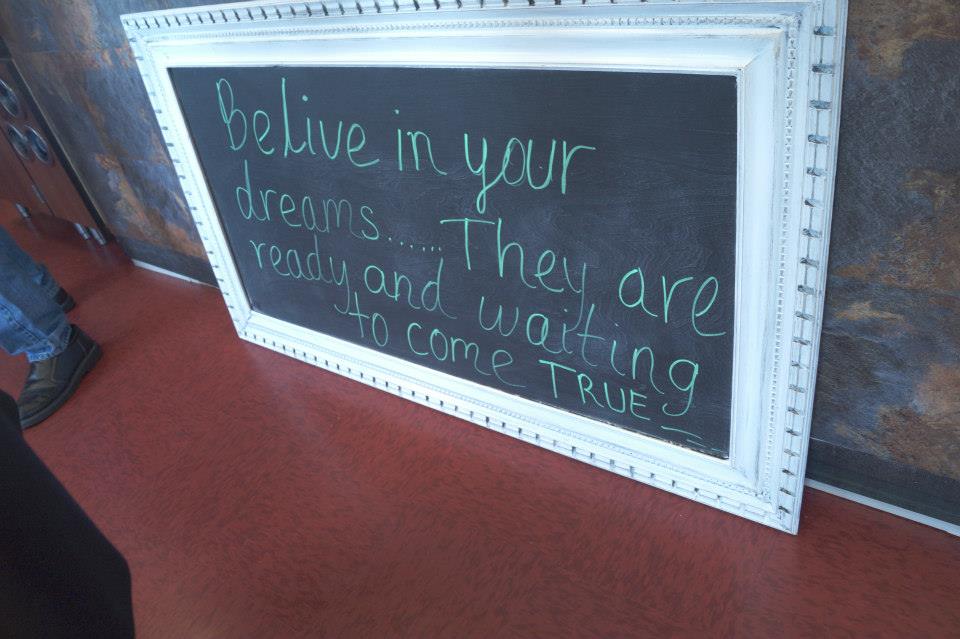 Belive in your
dreams...... They are
ready and waiting
to come TRUE